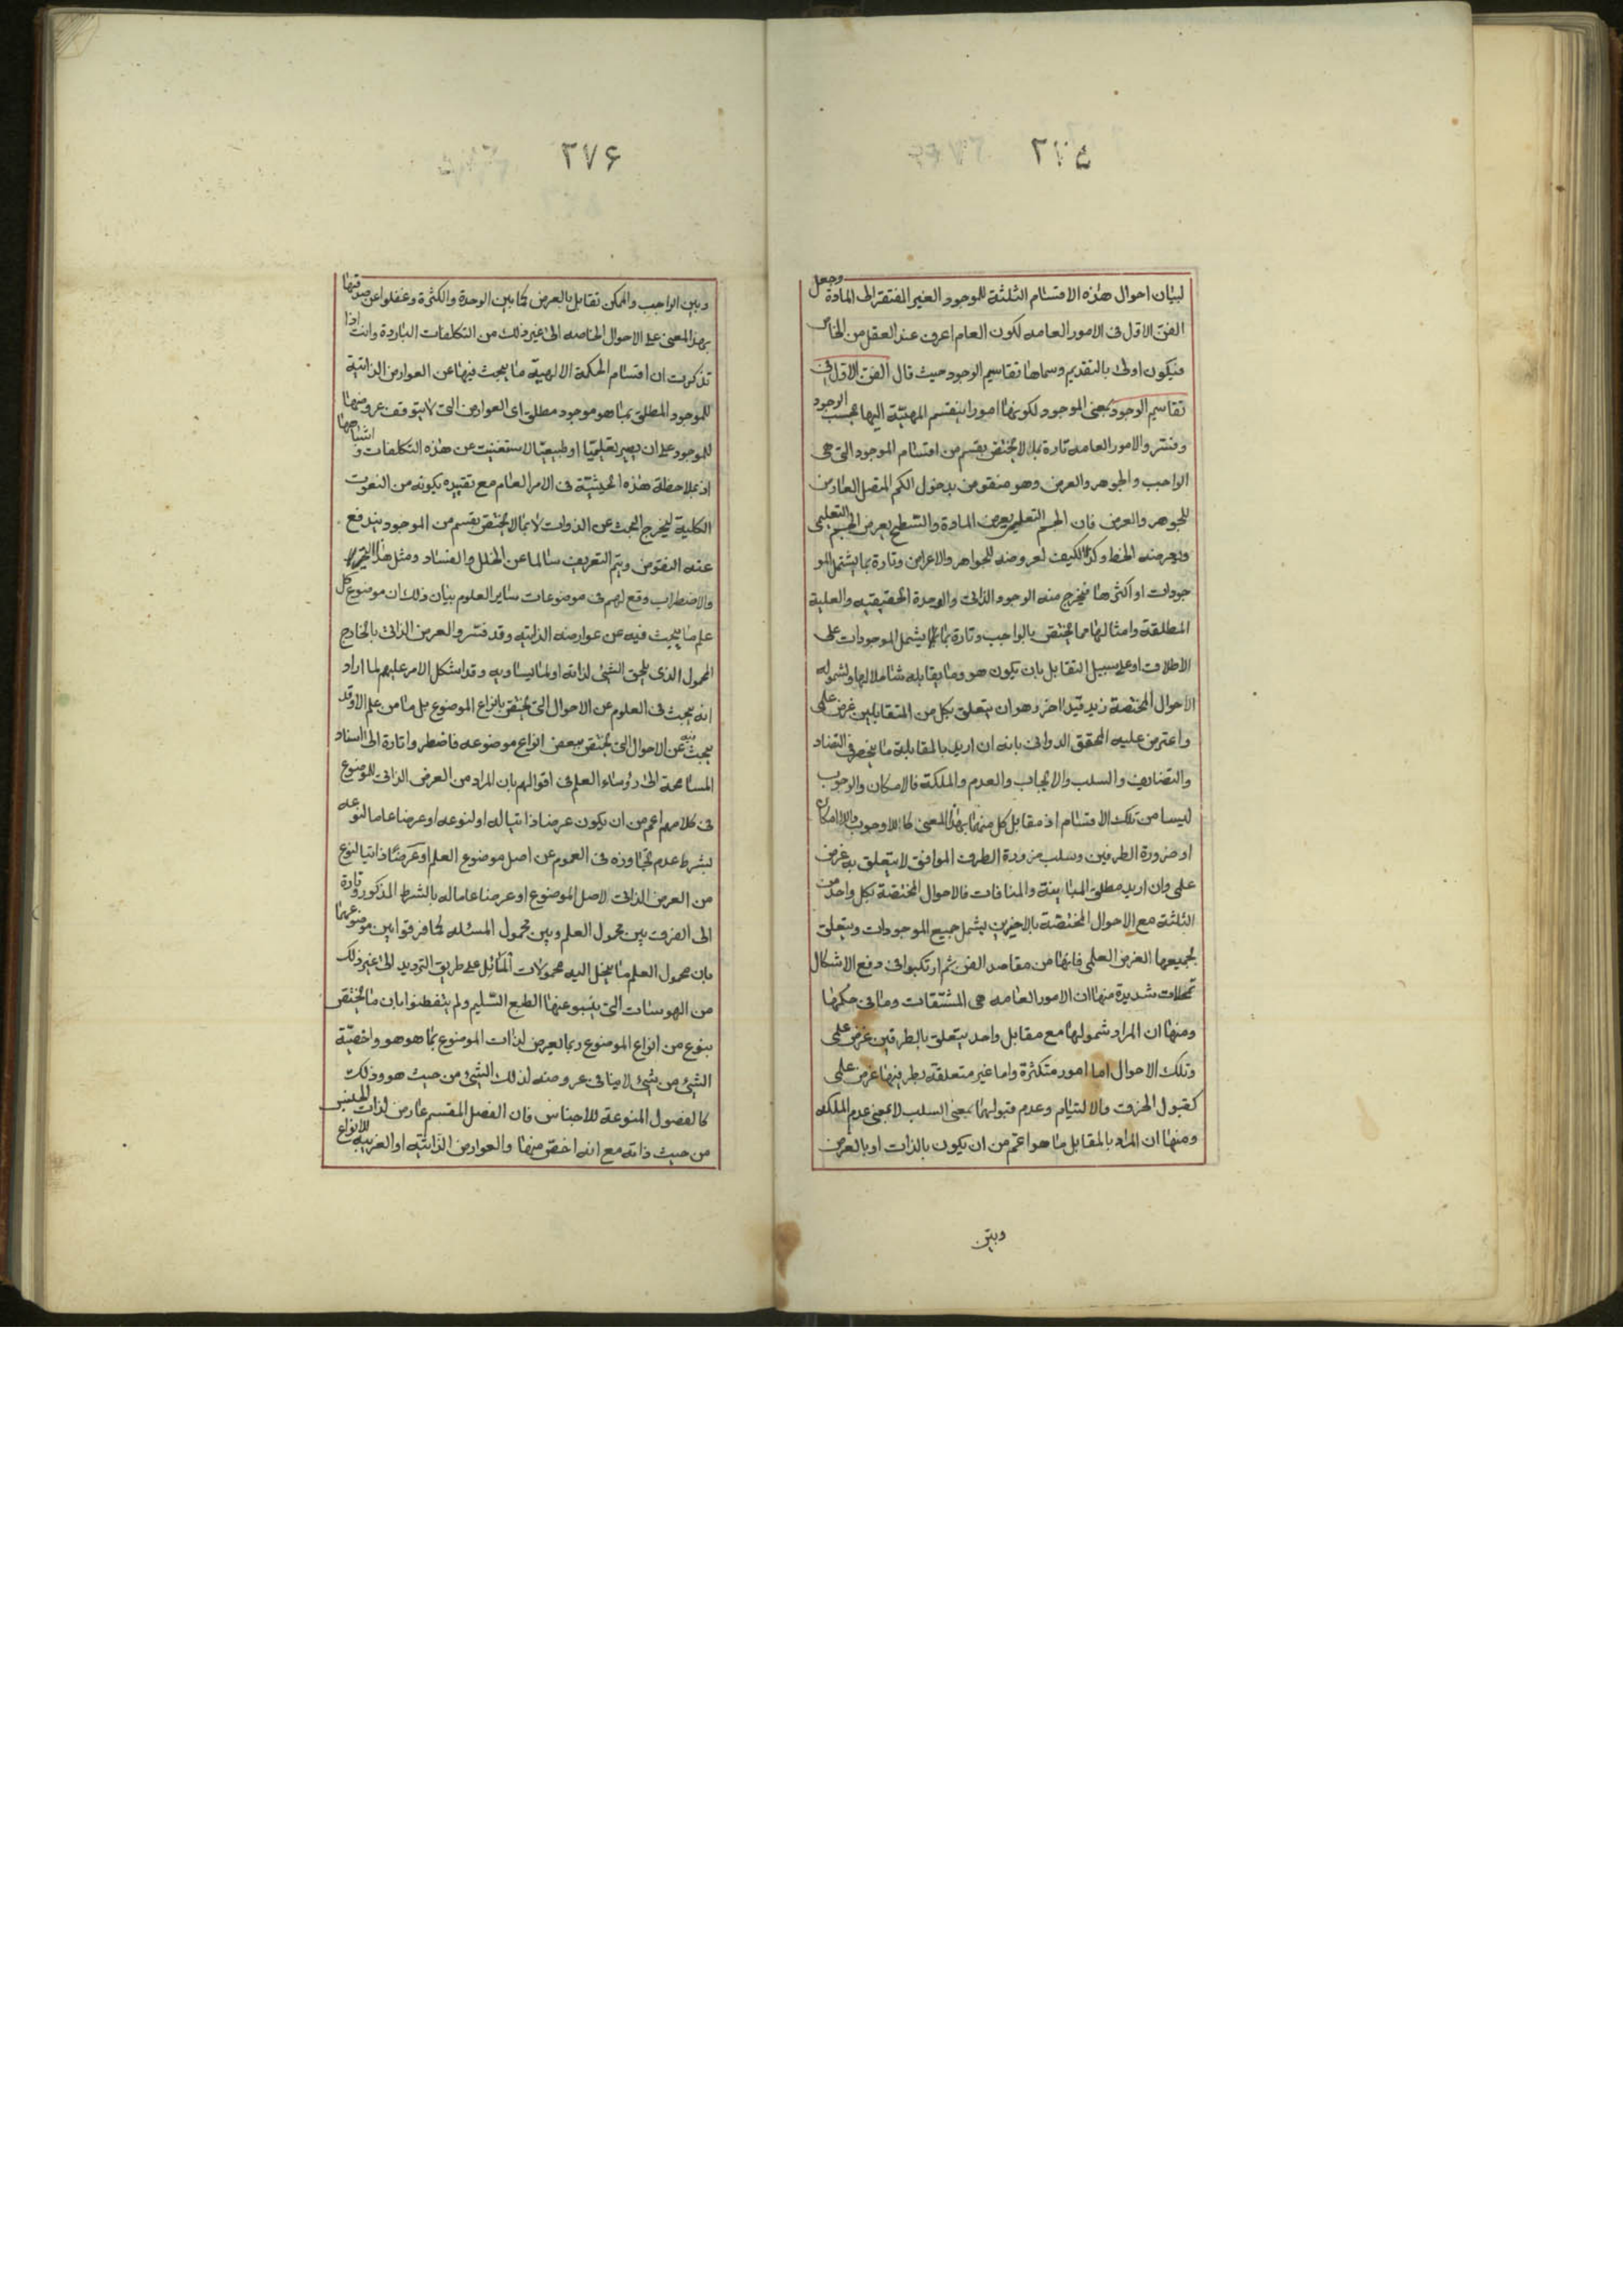 ٢٧۵
لبيان احوال هذه الاقسام الثلثة للموجود الغير المفتقر الى المادة وجعل
الفن الاول فى الامور العامه لكون العام اعرف عند العقل من الخاص
فيكون اولى بالتقديم وسماها تقاسيم الوجود حيث قال الفن الاول فى
تقاسيم الوجود بمعنى الموجود لكونها امورا ينقسم المهيّة اليها بحسب الوجود
وفسّر والامور العامه تارة بما لا يختص بقسم من اقسام الموجود التى هى
الواجب والجوهر والعرض وهو منقوض بدخول الكم المتصل العارض
للجوهر والعرض فان الجسم التعليمى يعرض المادة والسّطح يعرض الجسم التعليمى
ويعرضه الخط وكذا الكيف لعروضه للجواهر والاعراض وتارة بما يشتمل المو
جودات او اكثرها فيخرج منه الوجود الذاتى والوحدة الحقيقيه والعلية
المطلقة وامثالها مما يختص بالواجب وتارة بما يشمل الموجودات على
الاطلاق او على سبيل التقابل بان يكون هو وما يقابله شاملا لها ولشموله
الاحوال المختصة زيد قيد اخر وهو ان يتعلق بكل من المتقابلين غرض على
واعترض عليه المحقق الدوانى بانه ان اريد بالمقابلة ما ينحصر فى التضاد
والتضايف والسلب والايجاب والعدم والملكة فالامكان والوجوب
ليسا من تلك الاقسام اذ مقابل كل منهما بهذا المعنى كاللاوجوب واللاامكان
او ضرورة الطرفين وسلب ضرورة الطرف الموافق لا يتعلق به غرض
على وان اريد مطلق المباينة والمنافات فالاحوال المختصّة بكل واحد من
الثلثة مع الاحوال المختصّة بالاخيرين يشمل جميع الموجودات ويتعلق
بجميعها الغرض العلمى فانها من مقاصد الفن ثم ارتكبوا فى دفع الاشكال
تمحلات شديدة منها ان الامور العامه هى المشتقات وما فى حكمها
ومنها ان المراد شمولها مع مقابل واحد يتعلق بالطرفين غرض على
وتلك الاحوال اما امور متكثرة واما غير متعلقة بطرفيها غرض على
كقبول الخرق والالتيام وعدم قبولهما بمعنى السلب لا بمعنى عدم الملكه
ومنها ان المراد بالمقابل ما هو اعم من ان يكون بالذات او بالعرض
وبين
٢٧۶
وبين الواجب والممكن تقابل بالعرض كما بين الوحدة والكثرة وغفلوا عن صدقها
بهذا المعنى على الاحوال الخاصه الى غير ذلك من التكلفات الباردة وانت اذا
تذكرت ان اقسام الحكمة الالهية ما يبحث فيها عن العوارض الذاتية
للموجود المطلق بما هو موجود مطلق اى العوارض التى لا يتوقف عروضها
للموجود على ان يصير تعليميّا او طبيعيّا لاستغنيت عن هذه التكلفات واشباهها
اذ بملاحظة هذه الحيثيّة فى الامر العام مع تقييده بكونه من النعوت
الكلية ليخرج البحث عن الذوات لا بما لا يختص بقسم من الموجود يندفع
عنه النقوض ويتم التعريف سالما عن الخلل والفساد ومثل هذا التحير
والاضطراب وقع لهم فى موضوعات ساير العلوم بيان ذلك ان موضوع كل
علم ما يبحث فيه عن عوارضه الذاتيه وقد فسّر والعرض الذاتى بالخارج
المحمول الذى يلحق الشئ لذاته او لما يساويه وقد اشكل الامر عليهم لما اراد
انه يبحث فى العلوم عن الاحوال التى يختص بانواع الموضوع بل ما من علم الا وقد
يبحث فيه عن الاحوال التى تختص ببعض انواع موضوعه فاضطروا تارة الى اسناد
المسامحة الى رؤساء العلم فى اقوالهم بان المراد من العرض الذاتى للموضوع
فى كلامهم اعم من ان يكون عرضا ذاتيا له او لنوعه او عرضا عاما لنوعه
بشرط عدم تجاوزه فى العموم عن اصل موضوع العلم او عرضا ذاتيا لنوع
من العرض الذاتى لاصل الموضوع او عرضا عاما له بالشرط المذكور وتارة
الى الفرق بين محمول العلم وبين محمول المسئله كما فرقوا بين موضوعيهما
بان محمول العلم ما ينحل اليه محمولات المسائل على طريق الترديد الى غير ذلك
من الهوسات التى ينبو عنها الطبع السّليم ولم يتفطنوا بان ما يختص
بنوع من انواع الموضوع ربما يعرض لذات الموضوع بما هو هو واخصيّة
الشئ من شئ لا ينافى عروضه لذلك الشئ من حيث هو وذلك
كالفصول المنوعة للاجناس فان الفصل المقسم عارض لذات الجنس
من حيث ذاته مع انه اخص منها والعوارض الذاتيّه او الغريبه للانواع